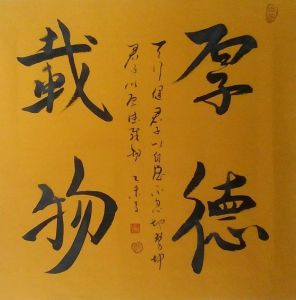 厚德
載物
天行健君子以自强不息地势坤
君子以厚德载物 乙未